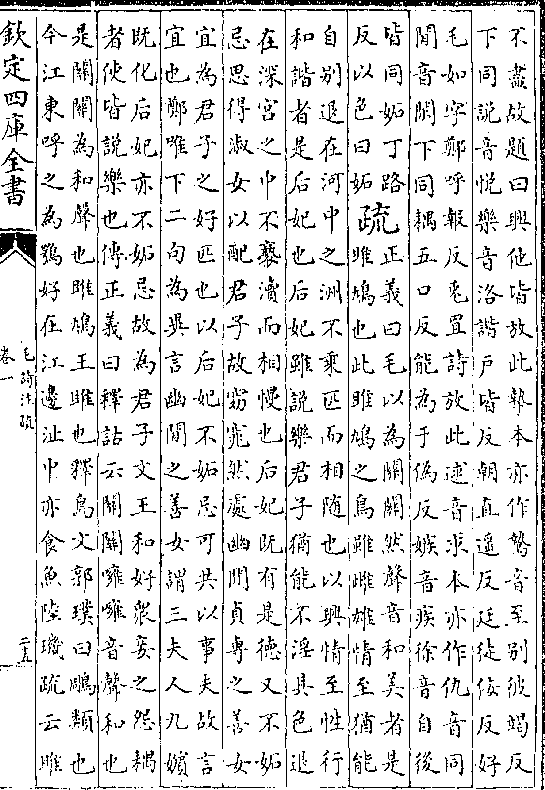 不盡故題曰興他皆放此摯本亦作鷙音至别彼竭反
下同説音悦樂音洛諧戶皆反朝直遥反廷徒佞反好
毛如字鄭呼報反兎罝詩放此逑音求本亦作仇音同
閒音閑下同耦五口反能為于偽反嫉音疾徐音自後
皆同妬丁路
反以色曰妬疏正義曰毛以為關關然聲音和美者是
雎鳩也此雎鳩之鳥雖雌雄情至猶能
自别退在河中之洲不乘匹而相隨也以興情至性行
和諧者是后妃也后妃雖説樂君子猶能不淫其色退
在深宫之中不褻瀆而相慢也后妃既有是徳又不妬
忌思得淑女以配君子故窈窕然處幽閒貞専之善女
宜為君子之好匹也以后妃不妬忌可共以事夫故言
宜也鄭唯下二句為異言幽閒之善女謂三夫人九嬪
既化后妃亦不妬忌故為君子文王和好衆妾之怨耦
者使皆説樂也傳正義曰釋詁云關關噰噰音聲和也
是關關為和聲也雎鳩王雎也釋鳥文郭璞曰鵰類也
今江東呼之為鶚好在江邉沚中亦食魚陸璣疏云雎
欽定四庫全書
毛詩注疏
卷一
二五